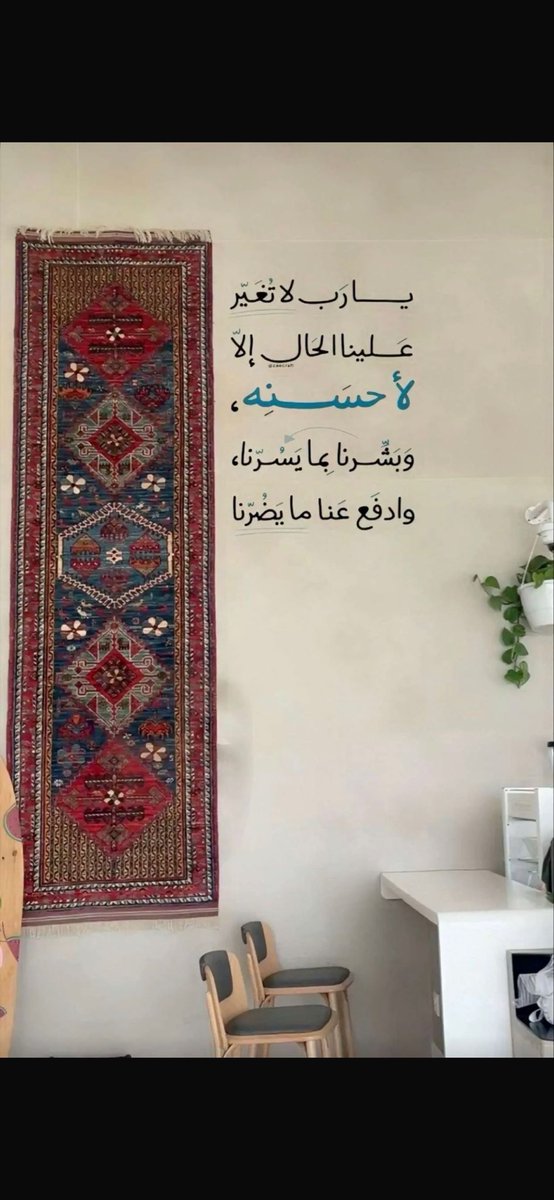 يا رَب لا تُغَيّر
عَلينا الحَال إلّا
@zakcraft
لأحسَنِه،
وَبَشِّرنا بِما يَسُرّنا،
وادفَع عَنا ما يَضُرّنا